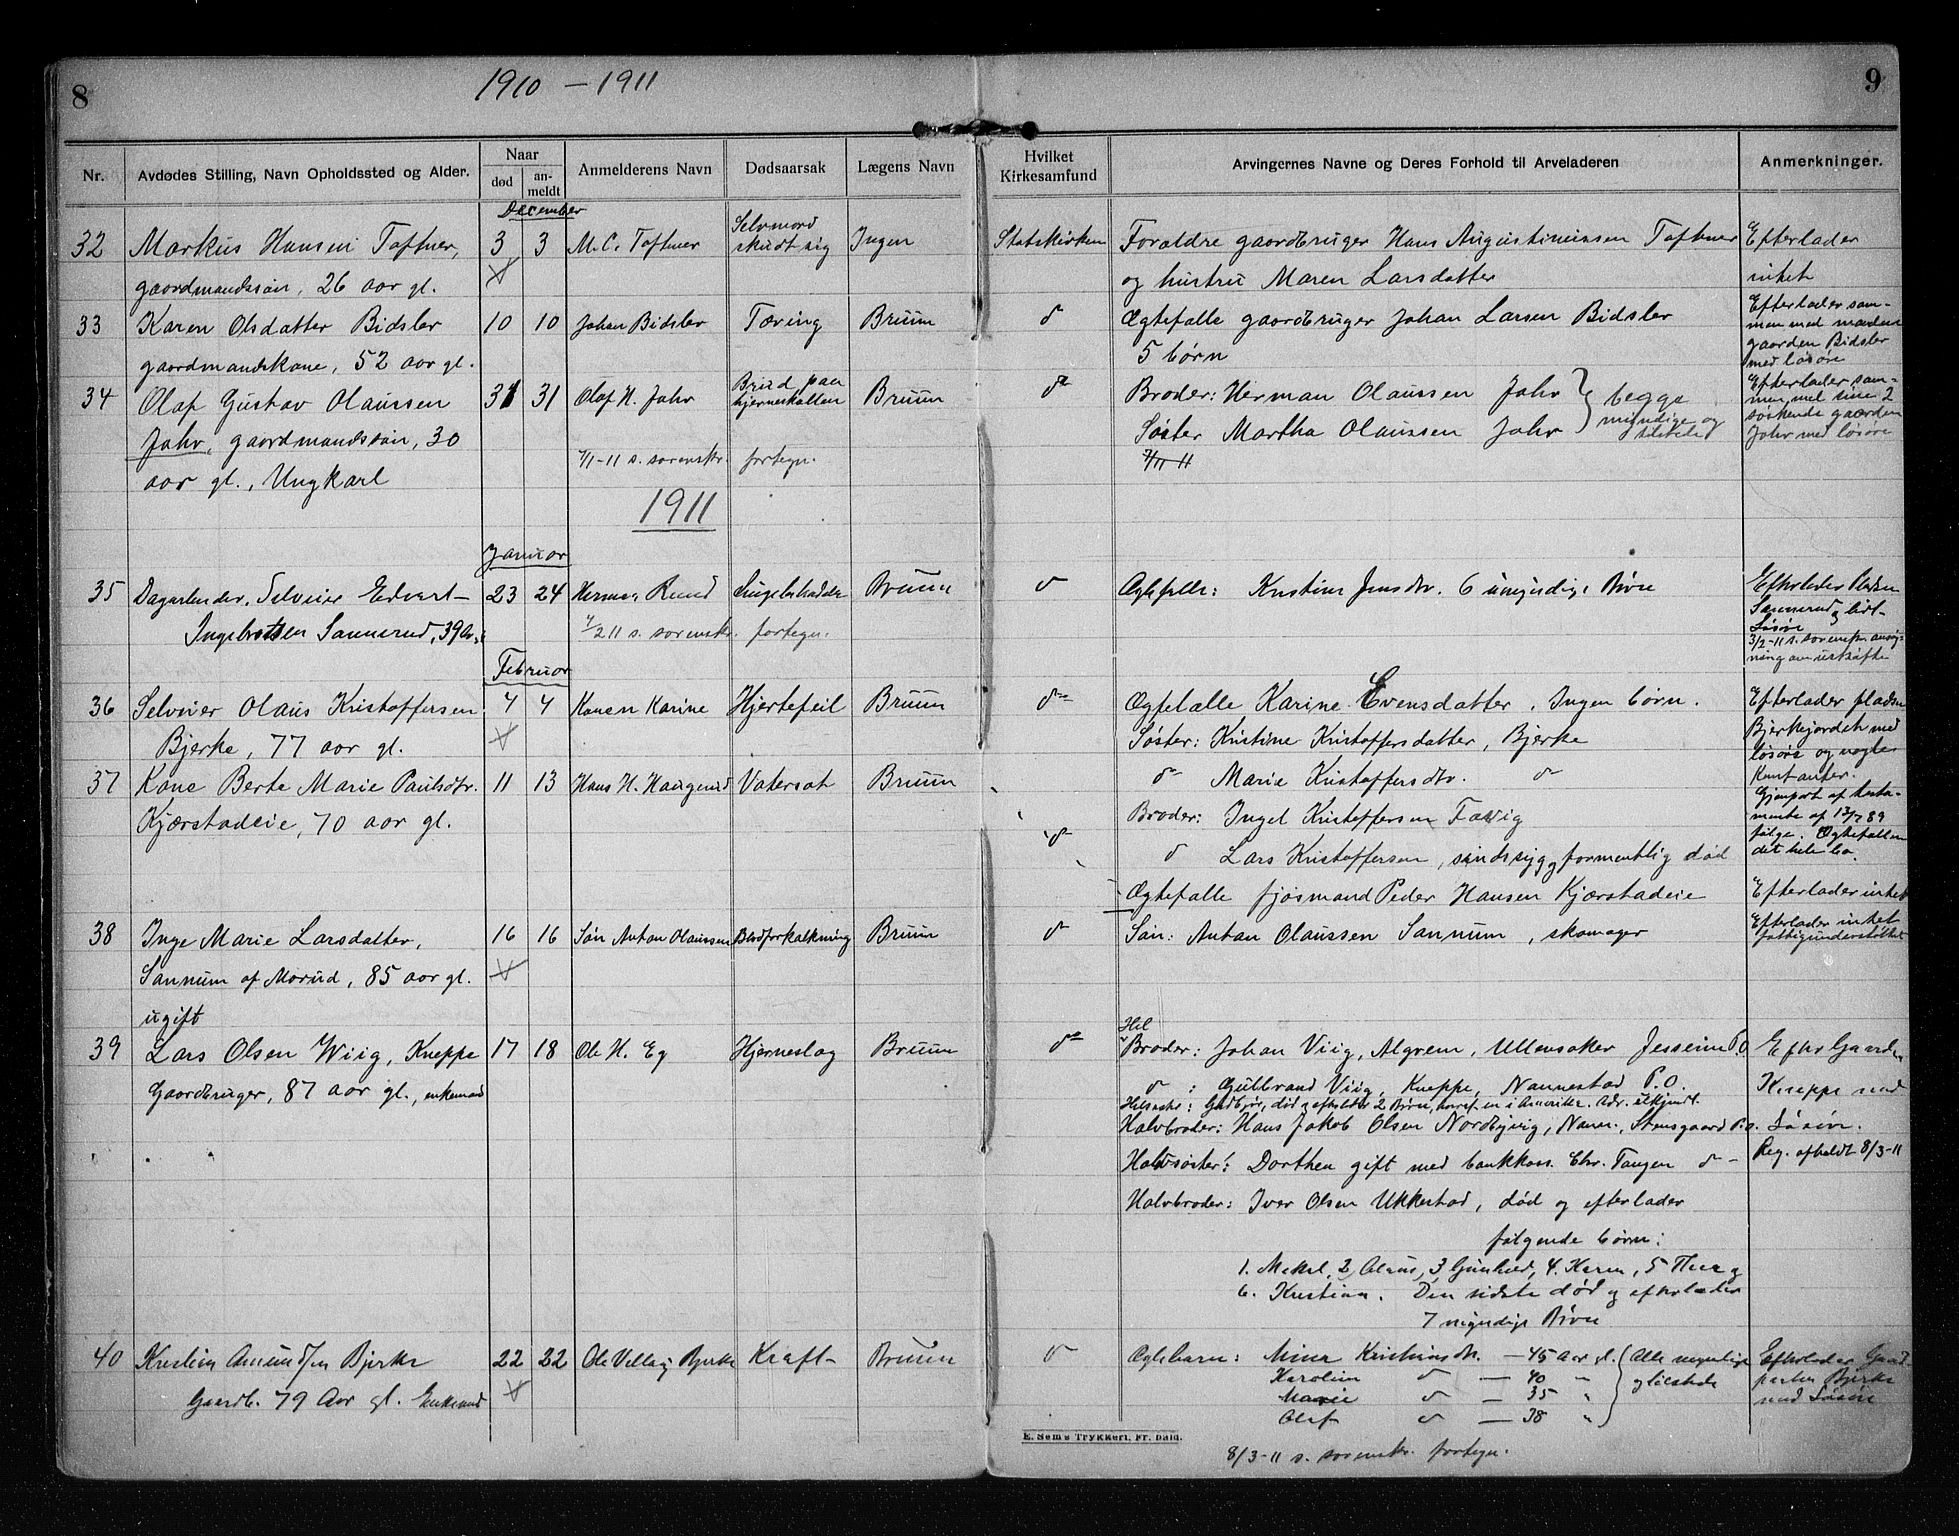 8
1910 – 1911
Nr.
Avdødes Stilling, Navn Opholdssted og Alder.
Naar
død
an-
meldt
Anmelderens Navn
Dødsaarsak
Lægens Navn
December
32
Markus Hansen Toftner,
gaardmandssøn, 26 aar gl.
3
3
M. C. Toftner
Selvmord
skudt sig
Ingen
33
Karen Olsdatter Bidsler
gaardmandskone, 52 aar gl.
10
10
Johan Bidsler
Tæring
Bruun
34
Olaf Gustav Olaussen
Jahr, gaardmandssøn, 30
aar gl., Ungkarl
31
31
Olaf H. Jahr
Brud paa
hjerneskallen
Bruun
7/1-11 s. sorenskr. fortegn.
1911
Januar
35
Dagarbeider, Selveier Edvart
Ingebretsen Sannerud, 39 a.
23
24
Herman Rund
Bruun
7/2 11 s. sorenskr. fortegn.
Februar
36
Selveier Olaus Kristoffersen
Bjerke, 77 aar gl.
4
4
Konen Karine
Hjertefeil
Bruun
37
Kone Berte Marie Paulsdtr.
Kjærstadeie, 70 aar gl.
11
13
Hans H. Haugerud
Vatersot
Bruun
38
Inge Marie Larsdatter,
Sannum af Morud, 85 aar gl.
ugift
16
16
Søn Anton Olaussen
Blodforkalkning
Bruun
39
Lars Olsen Wiig, Kneppe
Gaardbruger, 87 aar gl., enkemand
17
18
Ole H. Eg
Hjerneslag
Bruun
40
Kristian Amundsen Bjerke
Gaardb. 79 Aar gl. Enkemand
22
22
Bjerke
Kræft
Bruun
9
Hvilket
Kirkesamfund
Arvingernes Navne og Deres Forhold til Arveladeren
Anmerkninger.
Statskirken
Forældre gaardbruger Hans Augustinussen Toftner
og hustru Maren Larsdatter
Efterlader
intet
Ægtefælle gaardbruger Johan Larsen Bidsler
5 børn
Efterlader sam-
men med manden
gaarden Bidsler
med løsøre
Broder: Herman Olaussen Jahr
Søster Martha Olaussen Jahr
begge
myndige og
tilstede
7/1 11
Efterlader sam-
men med sine 2
søskende gaarden
Jahr med løsøre
Ægtefælle: Kristine Jensdtr. 6 umyndige Børn
Efterlader Pladsen
Sannerud og lidt
Løsøre
3/2-11 s. sorenskr.
Ægtefælle Karine Evensdatter, Ingen børn.
Søster: Kristine Kristoffersdatter, Bjerke
Marie Kristoffersdtr.
Broder: Ingel Kristoffersen
Lars Kristoffersen, sindssyg, formentlig død
Efterlader pladsen
Bjerkejordet med
løsøre og nogle
kontanter.
Gjenpart af testa-
mente af 13/7 89
følge. Ægtefællen
det hele bo.
Ægtefælle fjøsmand Peder Hansen Kjærstadeie
Efterlader intet
Søn: Anton Olaussen Sannum, skomager
Efterlader intet
fattigunderstøttet
Hel
Broder: Johan Viig, Algrem, Ullensaker Jesseim P.O.
Gulbrand Viig, Kneppe, Nannestad P.O.
død og efterlader 2 Børn, hvoraf en i Amerika. Adr. ubekjendt.
Halvbroder: Hans Jakob Olsen Nordbyvig, Nann., Stensgaard P.O.
Halvsøster: Dorthea gift med bankkass. Chr. Tangen
Halvbroder: Iver Olsen Ukkestad, død og efterlader
følgende børn:
1. Mekal, 2 Olaus, 3 Gunhild, 4. Karen, 5 Thea og
6. Kristian. Den sidste død og efterlader
7 umyndige Børn
Efterl. Gaarden
Kneppe med
Løsøre.
Reg. afholdt 8/3-11
Egtebarn: Mina Kristiansdtr. – 45 Aar gl.
Karoline – 40 "
Marie – 35 "
Olaf – 38 "
Alle myndige
og tilstede
Efterlader Gaard
parten Bjerke
med Løsøre
E. Sems Trykkeri, Fr.hald.
8/3-11 s. sorenskr. fortegn.